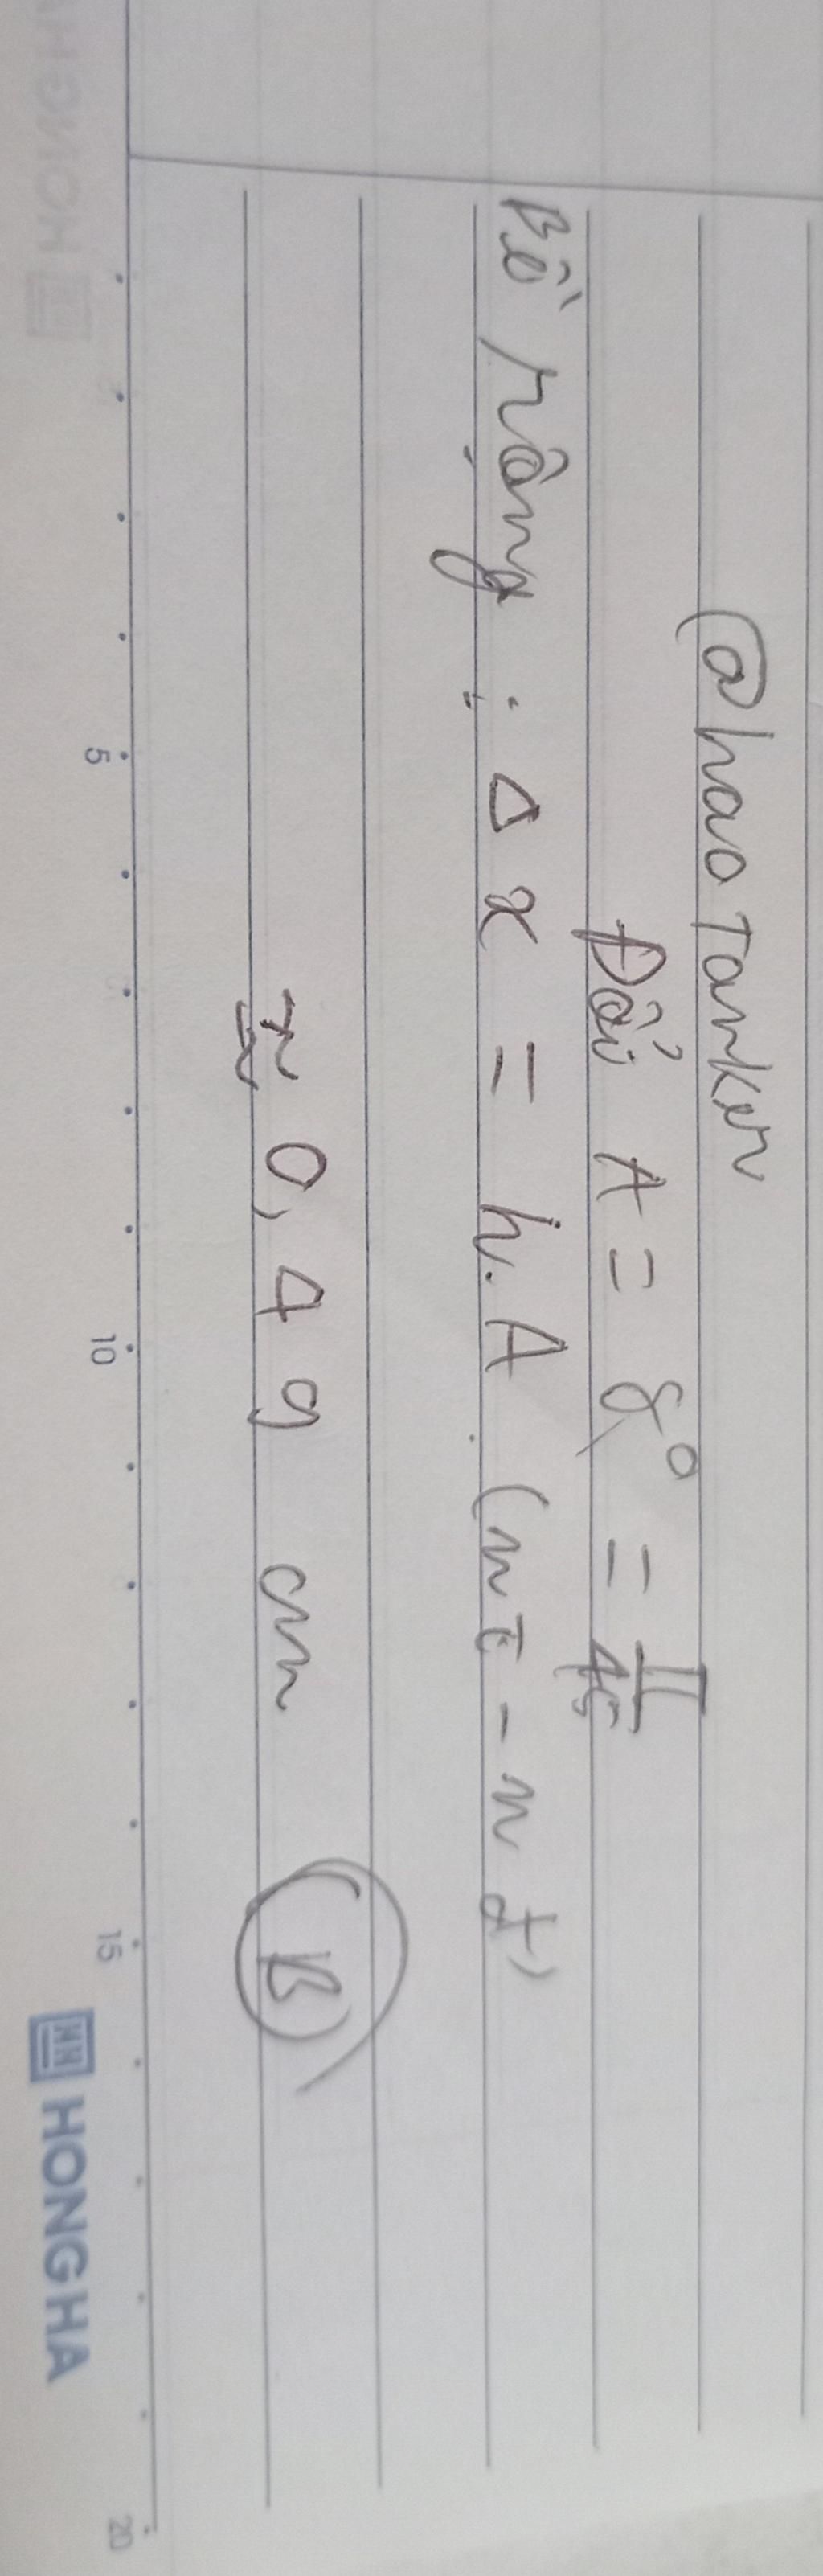 @haoTanker
Đổi A = 8° = π/45
Bề rộng : Δx = h.A (nt - nđ)
≈ 0,49 cm (B)
5 10 15 20
HONGHA
HONGHA